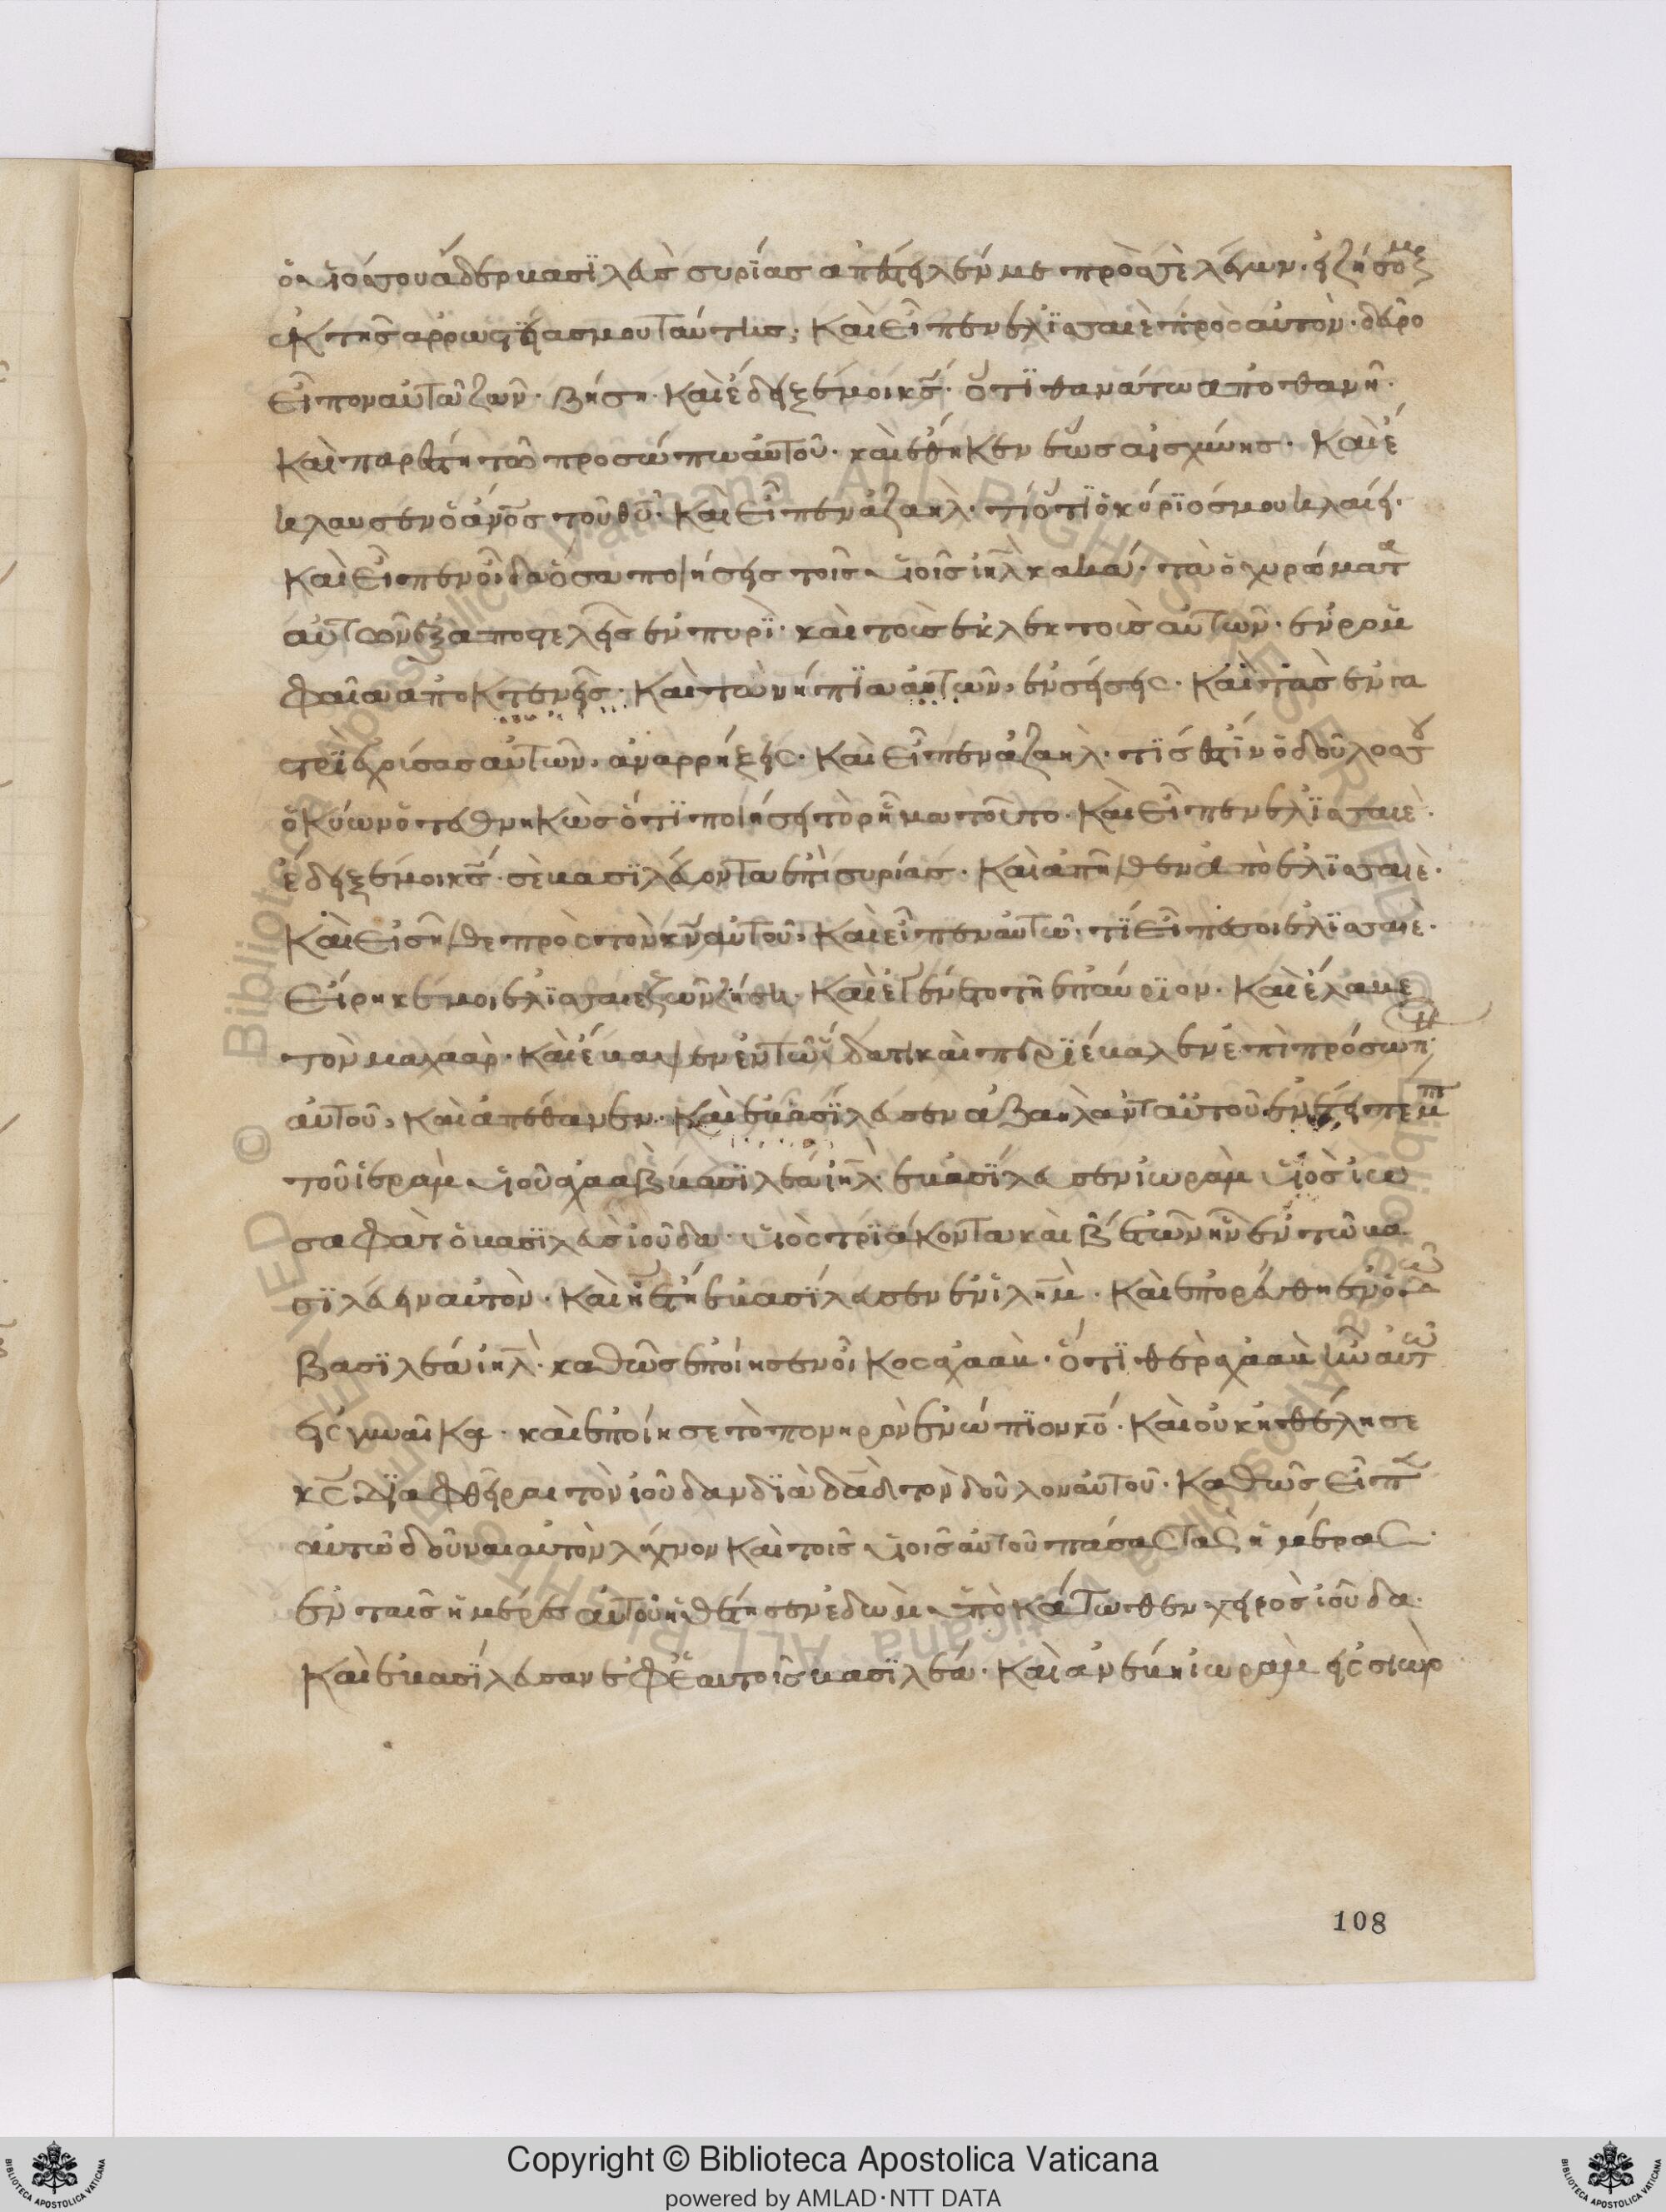 ὁ υἱός σου ἄδερ βασϊλεὺς συρίας ἀπέστειλέν με πρὸς σὲ λέγων· εἰ ζήσομαι
ἐκ τῆς ἀρρωστείας μου ταύτης· καὶ εἶπεν ἐλϊσσαιὲ πρὸς αὐτὸν· δεῦρο
εἶπον αὐτῶ ζωῆ· ζήση· καὶ ἔδειξέν μοι κς̅· ὅτϊ θανάτω ἀποθανῆ·
καὶ παρέστη τῶ προσώπω αὐτοῦ· καὶ ἔθηκεν ἕως αἰσχύνης· καὶ ἔ
κλαυσεν ὁ ἄνο̅ς τοῦ θυ̅· καὶ εἶπεν ἀζαὴλ· τί ὅτϊ ὁ κύρϊός μου κλαίει·
καὶ εἶπεν οἶδα ὅσα ποιήσεις τοῖς υἱοῖς ιη̅λ κακά· τὰ ὀχυρώματα
αὐτῶν ἐξαποστελεῖς ἐν πυρὶ· καὶ τοὺς ἐκλεκτοὺς αὐτῶν· ἐν ρομ
φαία ἀποκτενεῖς· καὶ τὰ νήπϊα αὐτῶν, ἐνσείσεις· καὶ τὰς ἐν γα
στρὶ ἐχούσας αὐτῶν, ἀναρρήξεις· καὶ εἶπεν ἀζαὴλ· τίς ἐστϊν ὁ δοῦλός σου
ὁ κύων ὁ τεθνηκὼς ὅτϊ ποιήσει τὸ ρῆμα τοῦτο· καὶ εἶπεν ἐλϊσσαιὲ·
ἔδειξέν μοι κς̅· σὲ βασϊλεύοντα ἐπὶ συρίας· καὶ ἀπῆλθεν ἀπὸ ἐλϊσσαιὲ·
καὶ εἰσῆλθε πρὸς τὸν κν̅ αὐτοῦ· καὶ εἶπεν αὐτῶ· τί εἶπέ σοι ἐλϊσσαιὲ·
εἴρηκέ μοι ἐλϊσσαιὲ ζωῆ ζήση· καὶ ἐγένετο τῆ ἐπαύρϊον· καὶ ἔλαβε
τὸν μαχβὰρ· καὶ ἔβαψεν ἐν τῶ ὕδατι καὶ περϊέβαλεν ἐπὶ πρόσωπον
αὐτοῦ, καὶ ἀπέθανεν· καὶ ἐβασίλευσεν ἀζαὴλ ἀντ αὐτοῦ· ἐν ἔτει πέμπτω
τοῦ ἰωρὰμ υἱοῦ ἀχαὰβ βασϊλέως ιη̅λ· ἐβασίλευσεν ἰωρὰμ υἱὸς ἰω
σαφὰτ ὁ βασϊλεὺς ἰούδα· υἱὸς τρϊάκοντα καὶ β ἐτῶν ἦν ἐν τῶ βα
σϊλεύειν αὐτὸν· καὶ η ἔτη ἐβασίλευσεν ἐν ιλη̅μ· καὶ ἐπορεύθη ἐν ὁδῶ
βασϊλέων ιη̅λ· καθὼς ἐποίησεν οἶκος ἀχαὰβ· ὅτϊ θυγάτηρ ἀχαὰβ ἦν αὐτῶ
εἰς γυναῖκα· καὶ ἐποίησε τὸ πονηρὸν ἐνώπϊον κυ̅· καὶ οὐκ ἠθέλησε
κς̅ δϊαφθεῖραι τὸν ἰούδαν δϊὰ δα̅δ τὸν δοῦλον αὐτοῦ· καθὼς εἶπεν
αὐτῶ δοῦναι αὐτὸν λύχνον καὶ τοῖς υἱοῖς αὐτοῦ πάσας τὰς ἡμέρας·
ἐν ταῖς ἡμέραις αὐτοῦ ἠθέτησεν ἐδὼμ ὑποκάτωθεν χειρὸς ἰούδα·
καὶ ἐβασίλευσαν ἐφ ἑαυτοῖς βασϊλέα· καὶ ἀνέβη ἰωρὰμ εἰς σιὼρ
108
Copyright © Biblioteca Apostolica Vaticana
powered by AMLAD·NTT DATA